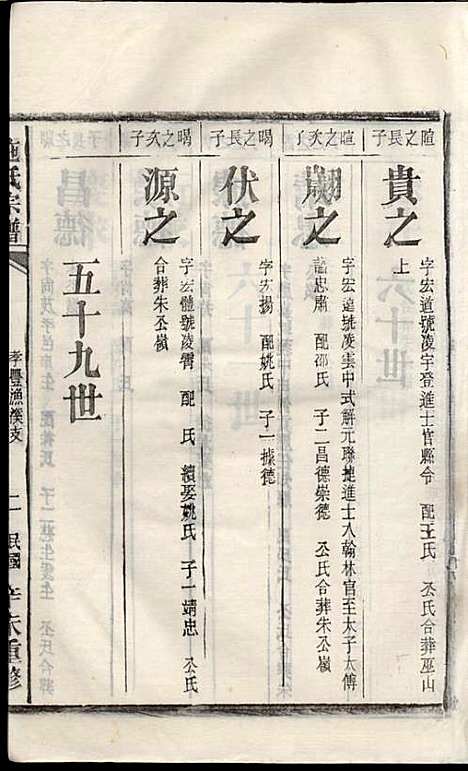 暄之長子
貴之
字宏道號凌宇登進士官縣令 配王氏 公氏合葬巫山
上
暄之次子
翽之
字宏遠號凌雲中式解元聯捷進士入翰林官至太子太傅
諡忠肅 配邵氏 子二昌德崇德 公氏合葬朱公嶺
暍之長子
伏之
字宏揚 配姚氏 子一據德
暍之次子
源之
字宏體號凌霄 配 氏 續娶姚氏 子一靖忠 公氏
合葬朱公嶺
五十九世
施氏宗譜
孝豐漁濮支
二
民國辛未重修